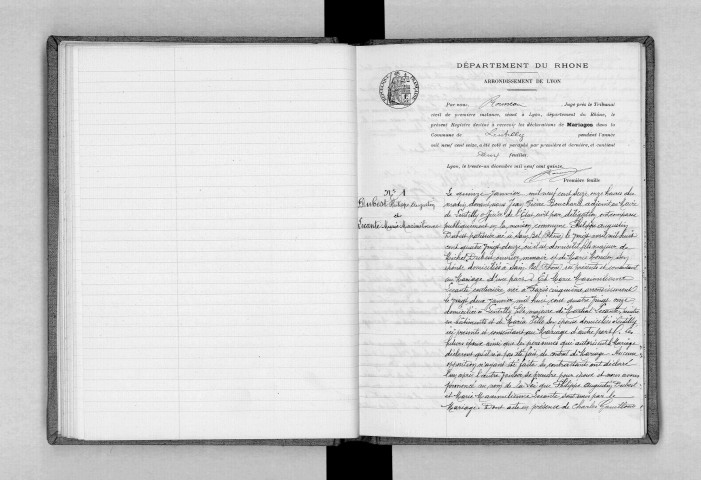 DÉPARTEMENT DU RHONE
ARRONDISSEMENT DE LYON
Par nous, Juge près le Tribunal
civil de première instance, séant à Lyon, département du Rhône, le
présent Registre destiné à recevoir les déclarations de Mariages dans la
Commune de Lentilly pendant l'année
mil neuf cent seize, a été coté et paraphé par première et dernière, et contient
feuillets.
Lyon, le trente-un décembre mil neuf cent quinze.
Première feuille
N° 1
Dubost Philippe Augustin
&
Lecante Marie Maximilienne
Le quinze janvier mil neuf cent seize onze heures du
matin, devant nous Jean Pierre adjoint au Maire
de Lentilly officier de l'état civil par délégation, ont comparu
publiquement en la maison commune Philippe Augustin
Dubost né à Sain Bel Rhône, le vingt avril mil huit
cent quatre vingt douze, où il est domicilié, fils majeur de
Michel Dubost, ouvrier mineur et de Marie son
épouse domiciliés à Sain Bel Rhône, ici présents et consentant
au Mariage d'une part. & Et Marie Maximilienne
Lecante couturière, née à Paris cinquième arrondissement
le vingt deux janvier mil huit cent quatre vingt onze
domiciliée à Lentilly, fille majeure de Lecante,
en bâtiments et de Maria son épouse domiciliés à Lentilly
ici présents et consentant au Mariage d'autre part. Les
futurs époux ainsi que les personnes qui autorisent le Mariage
déclarent qu'il n'a pas été fait de contrat de Mariage. Aucune
opposition n'ayant été faite les contractants ont déclaré
l'un après l'autre vouloir se prendre pour époux et nous avons
prononcé au nom de la loi que Philippe Augustin Dubost
et Marie Maximilienne Lecante sont unis par le
Mariage. Dont acte en présence de Charles